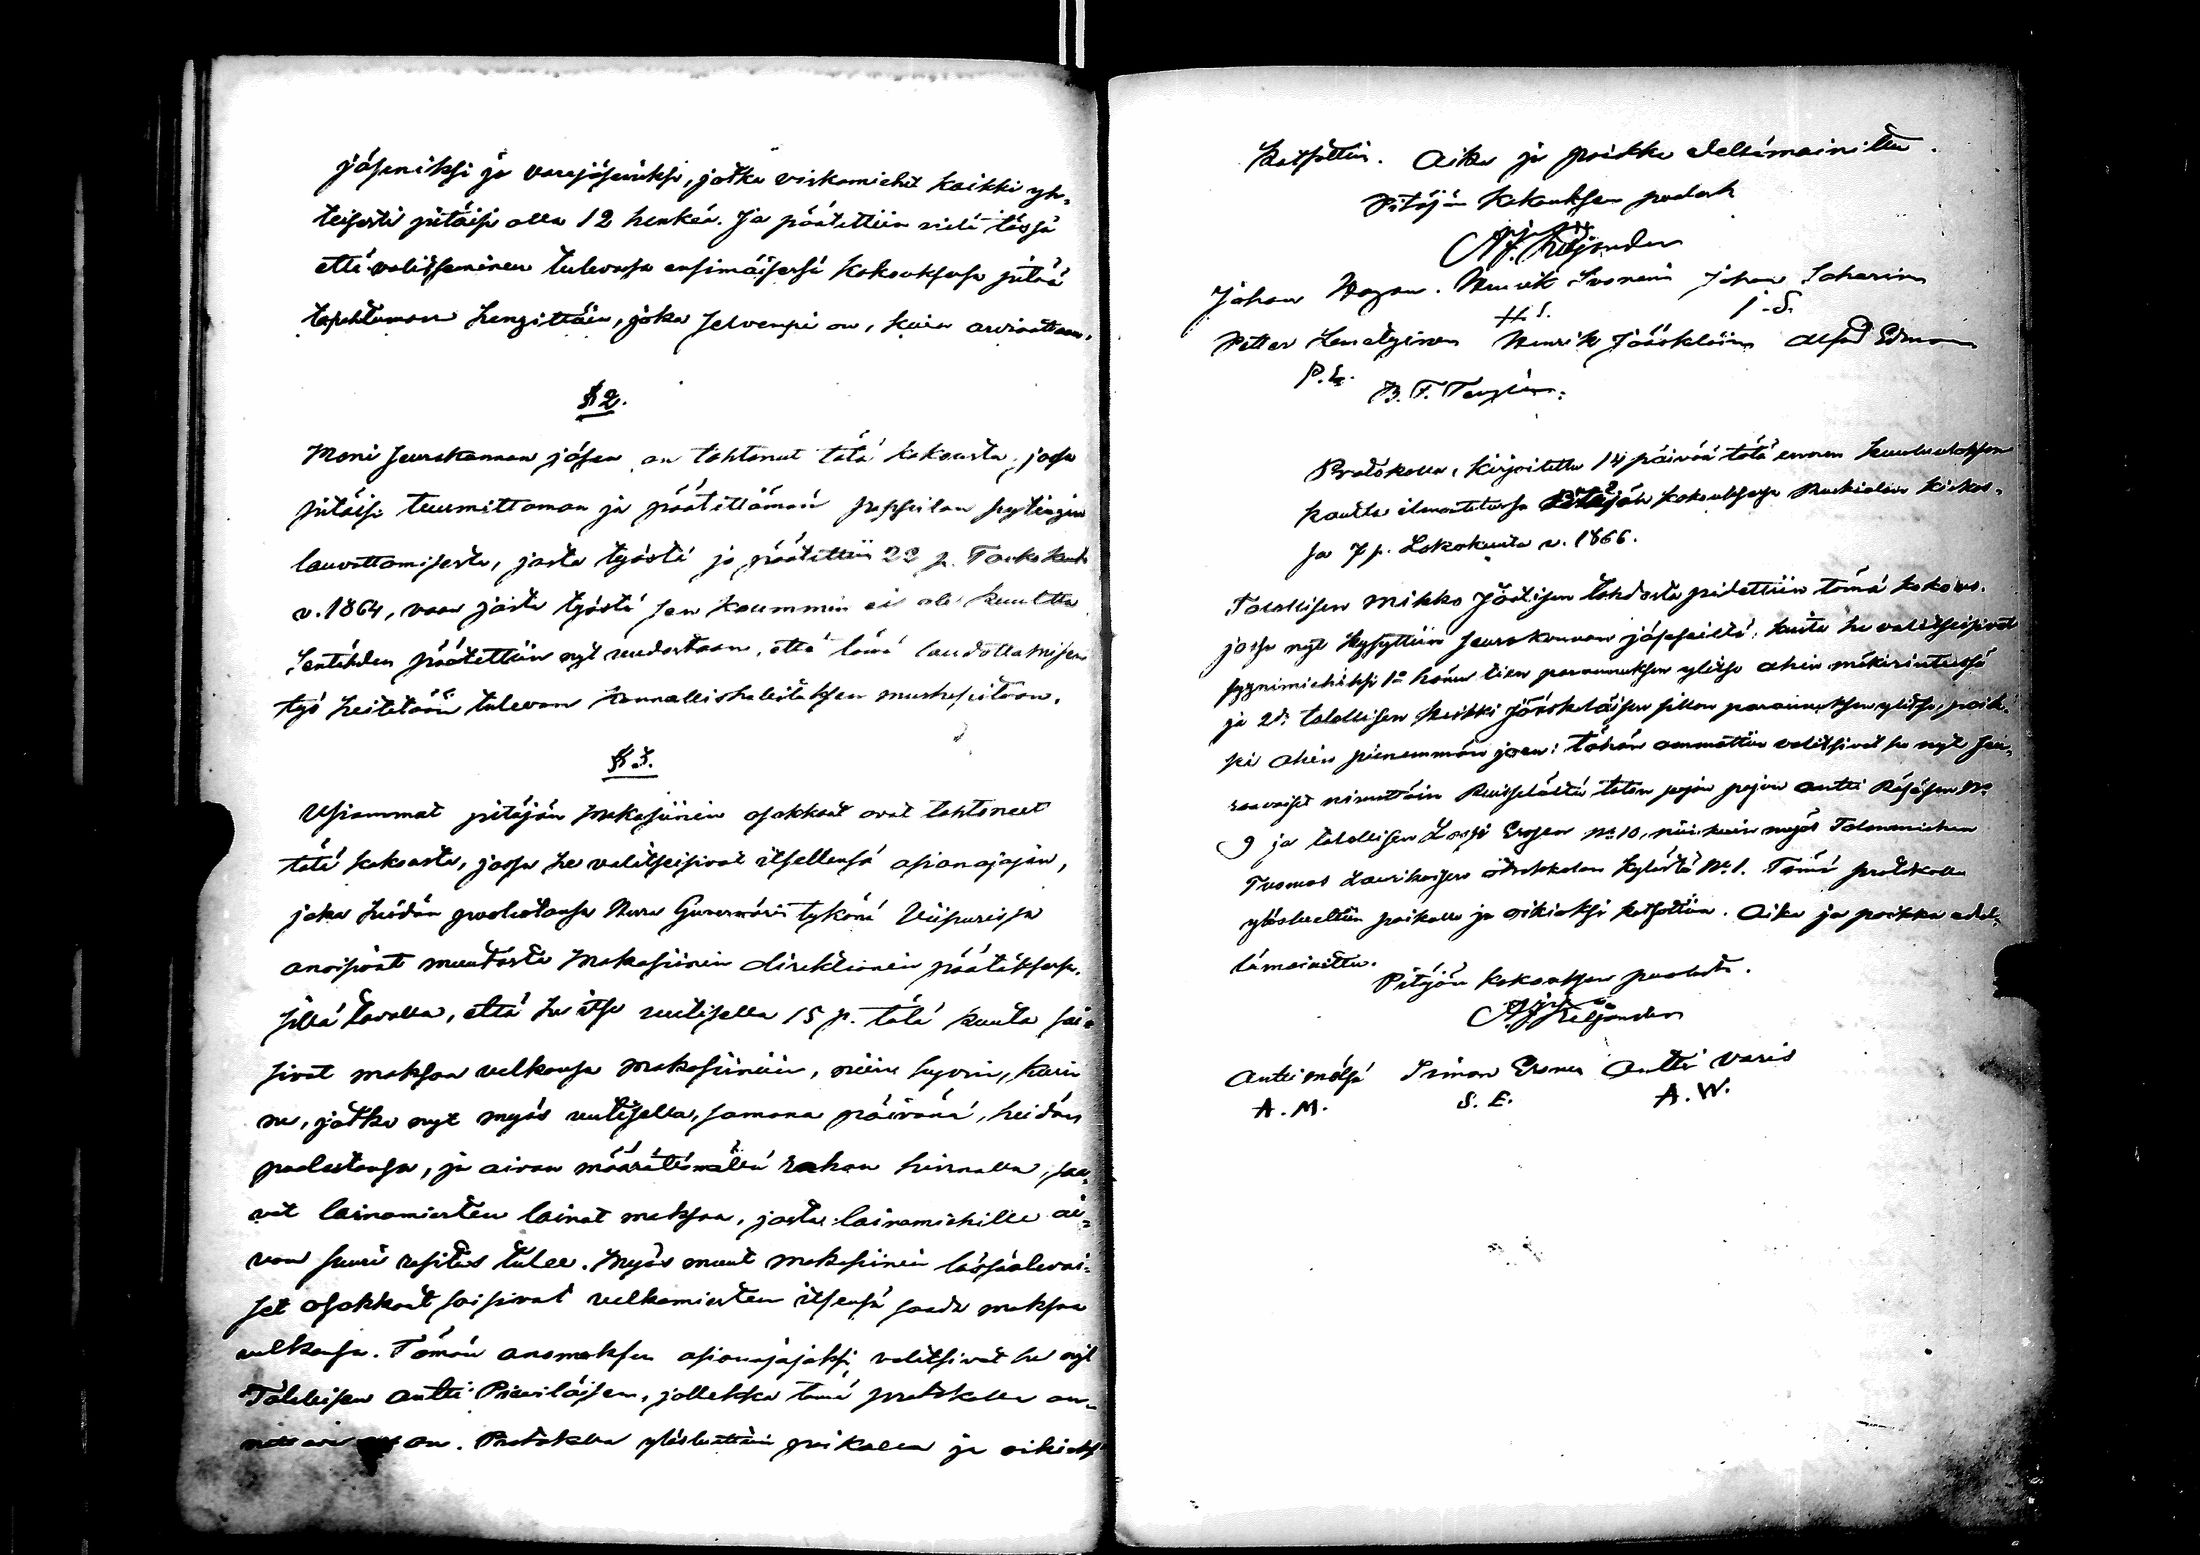 jäseniksi ja varajäseniksi, jotka virkamiehet kaikki yh-
teisesti pitäisi olla 12 henkeä. Ja päätettiin vielä tässä
että valitseminen tulevassa ensimäisessä kokouksessa pitää
tapahtuman hengittäin, joka selvempi on, kuin arvioittain.
§ 2.
Moni seurakunnan jäsen on tahtonut tätä kokousta, jossa
pitäisi tuumittaman ja päätettämän pappilan pytingin
lauvottamisesta, josta työstä jo päätettiin 22 p. Toukokuuta
v. 1864, vaan josta työstä sen kaummin ei ole kuultu
Sentähden päätettiin nyt uudestaan, että tämä laudottamisen
työ heitetään tulevan kunnallishallituksen murheesitaan.
§ 3.
Usiammat pitäjän makasiinin osakkaat ovat tahtoneet
tätä kokousta, jossa he valitseisivat itsellensä asianajajan,
joka heidän puolestansa Herra Guvernörin tykönä Viipurissa
anoisivat muutosta Makasiinin direktionin päätöksessä,
sillä tavalla, että he itse uutisella 15 p. tätä kuuta sai-
sivat maksaa velkansa makasiiniin, niin hyvin, kuin
ne, jotka nyt myös uutisella, samana päivänä, heidän
puolestansa, ja aivan määrätömällä rahan hinnalla, saa-
vat lainamiesten lainat maksaa, josta lainamiehille ai-
van suuri rasitus tulee. Myös muut makasiinin läsnäolevai-
set osakkaat saisivat velkamiesten itsensä saada maksaa
velkansa. Tämän anomuksen asianajajaksi, valitsivat he nyt
Talollisen Antti Pieniläisen, jollekka tämä protokolla an-
on. Protokolla ylösluettiin paikalla ja oikiaksi
katsottiin. Aika ja paikka edellämainittu.
Pitäjän kokouksen puolesta
A. F. Kiljander
Johan Henrik Ivonen Johan Saharin
H. I. J. S.
Petter Henrik Jääskeläin Alfred Edman
P. L. B. F.
Protokolla, kirjoitettu 14 päivää tätä ennen kuulutuksen
kautta ilmoitetussa Pitäjän kokouksessa Ruskialan kirkos-
sa 7 p. Lokakuuta v. 1866.
Talollisen Mikko tahdosta pidettiin tämä kokous.
jossa nyt kysyttiin seurakunnan jäseniltä, kuita he valitseisivat
syynimiehiksi 1:o tien parannuksen ylitse ahin mäkirinteessä
ja 2:o talollisen Heikki Jääskeläisen sillan parannuksen ylitse, poik-
ki ahin pienemmän joen: Tähän ammattiin valitsivat he nyt seu-
raavaiset nimittäin talon pojan Antti Räsäsen No
9 ja talollisen Lassi Erosen No 10, niin kuin myös Talonmiehen
Tuomas Laurikaisen kylästä No 1. Tämä protokolla
ylösluettiin paikalla ja oikiaksi katsottiin. Aika ja paikka edel-
lämainittu.
Pitäjän kokouksen puolesta.
A. F. Kiljander
Antti Mölsä Simon Eronen Antti Varis
A. M. S. E. A. W.